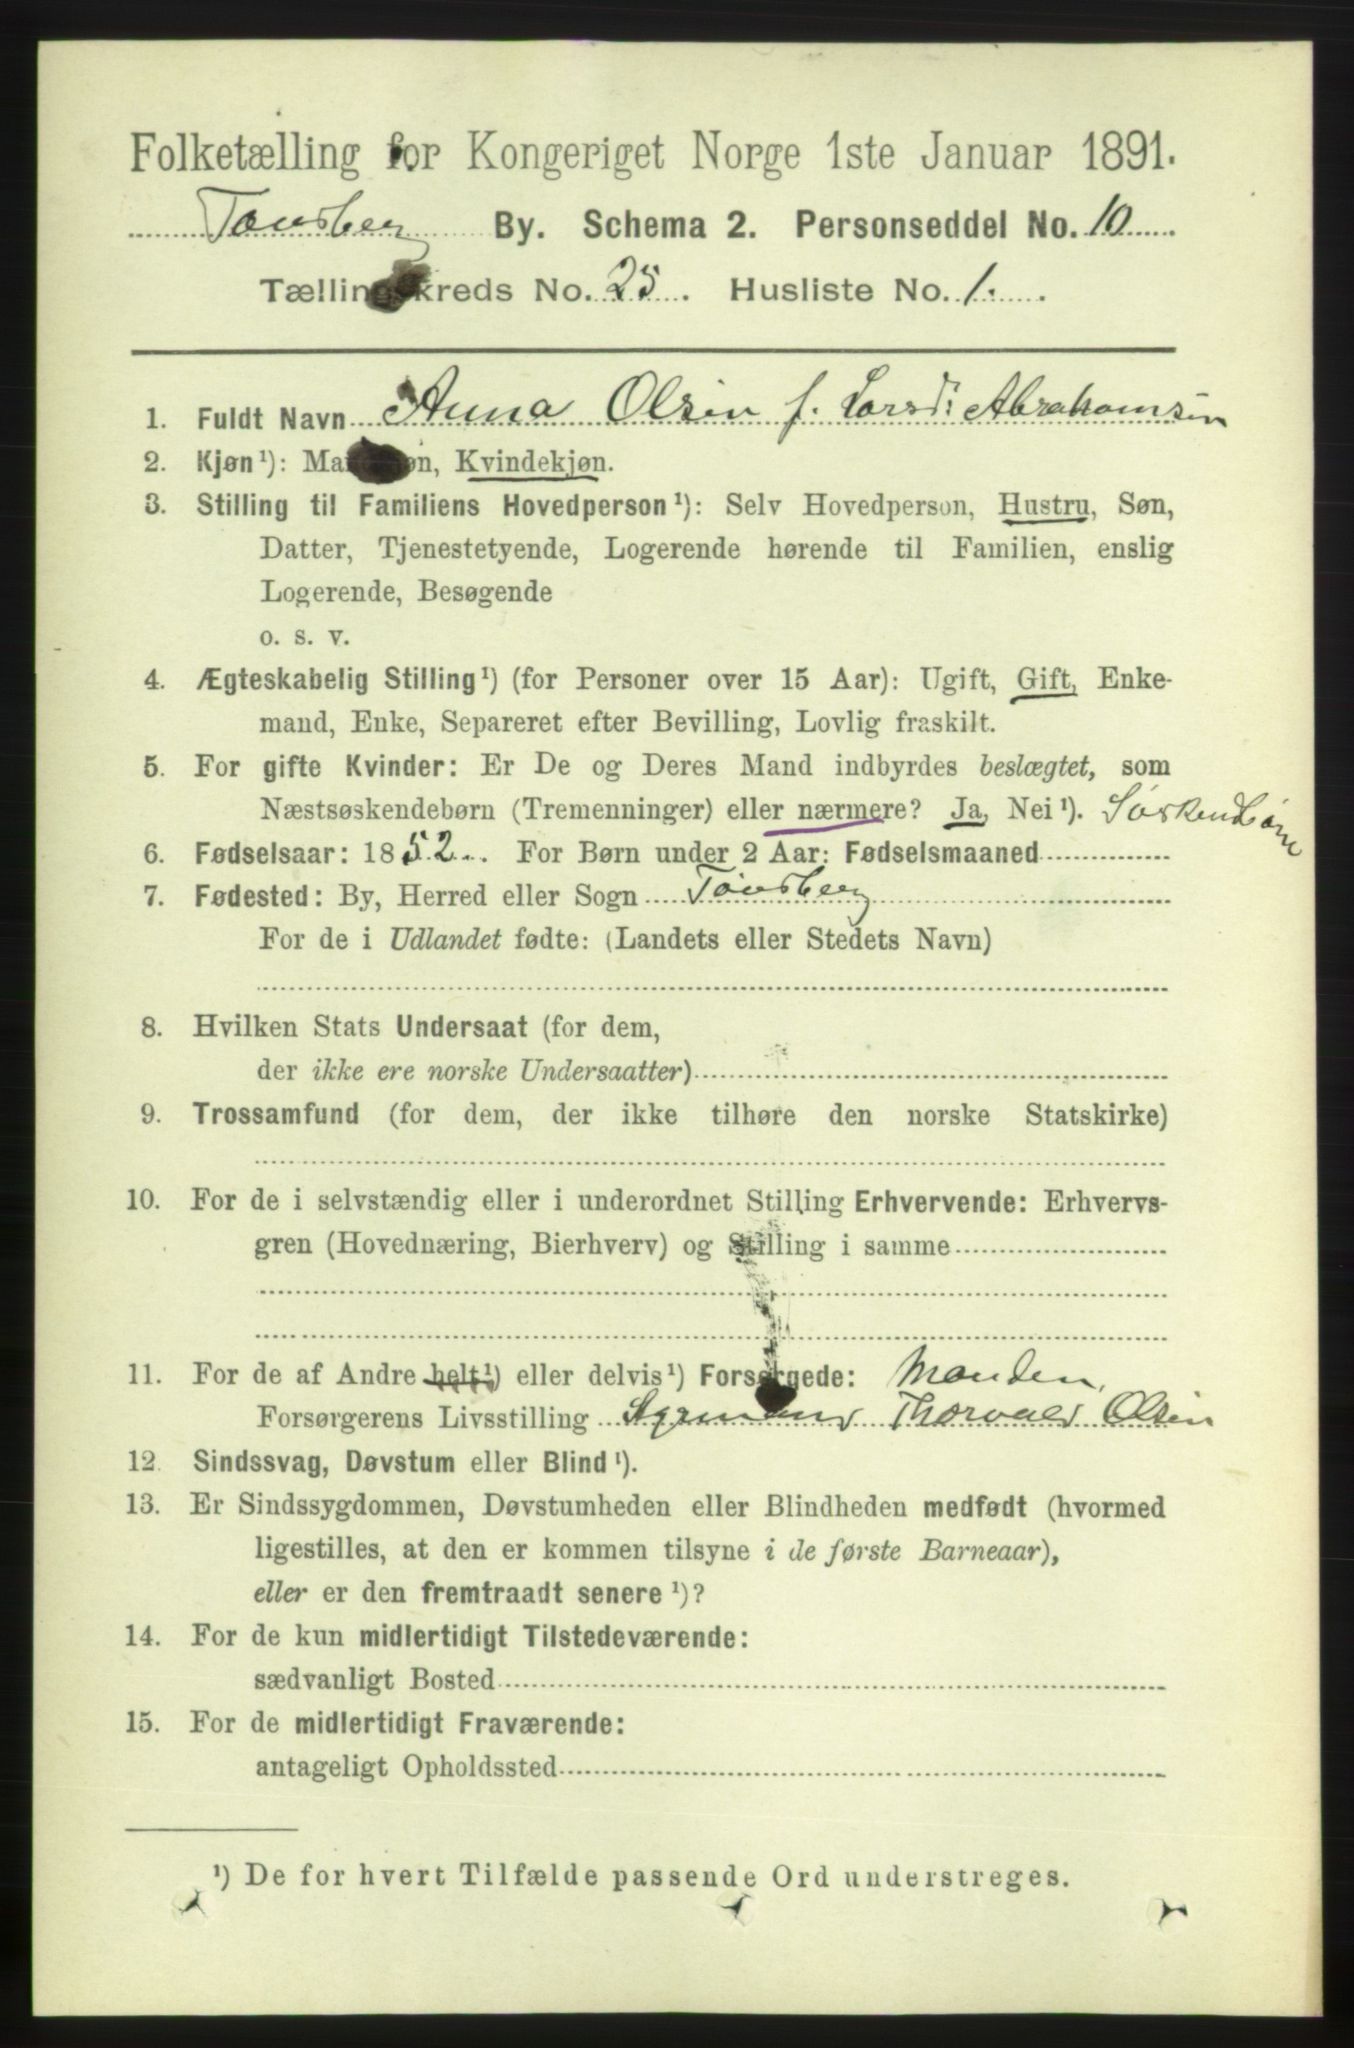 Folketælling for Kongeriget Norge 1ste Januar 1891.
Tønsberg By. Schema 2. Personseddel No. 10
Tællingskreds No. 25. Husliste No. 1.
1. Fuldt Navn Anna Olsen f. Larsd: Abrahamsen
2. Kjøn¹): Mandkjøn, Kvindekjøn.
3. Stilling til Familiens Hovedperson¹): Selv Hovedperson, Hustru, Søn,
Datter, Tjenestetyende, Logerende hørende til Familien, enslig
Logerende, Besøgende
o. s. v.
4. Ægteskabelig Stilling¹) (for Personer over 15 Aar): Ugift, Gift, Enke-
mand, Enke, Separeret efter Bevilling, Lovlig fraskilt.
5. For gifte Kvinder: Er De og Deres Mand indbyrdes beslægtet, som
Næstsøskendebørn (Tremenninger) eller nærmere? Ja, Nei¹). Søskendbørn
6. Fødselsaar: 1852. For Børn under 2 Aar: Fødselsmaaned
7. Fødested: By, Herred eller Sogn Tønsberg
For de i Udlandet fødte: (Landets eller Stedets Navn)
8. Hvilken Stats Undersaat (for dem,
der ikke ere norske Undersaatter)
9. Trossamfund (for dem, der ikke tilhøre den norske Statskirke)
10. For de i selvstændig eller i underordnet Stilling Erhvervende: Erhvervs-
gren (Hovednæring, Bierhverv) og Stilling i samme
11. For de af Andre helt¹) eller delvis¹) Forsørgede: Manden,
Forsørgerens Livsstilling Thorvald Olsen
12. Sindssvag, Døvstum eller Blind¹).
13. Er Sindssygdommen, Døvstumheden eller Blindheden medfødt (hvormed
ligestilles, at den er kommen tilsyne i de første Barneaar),
eller er den fremtraadt senere¹)?
14. For de kun midlertidigt Tilstedeværende:
sædvanligt Bosted
15. For de midlertidigt Fraværende:
antageligt Opholdssted
¹) De for hvert Tilfælde passende Ord understreges.